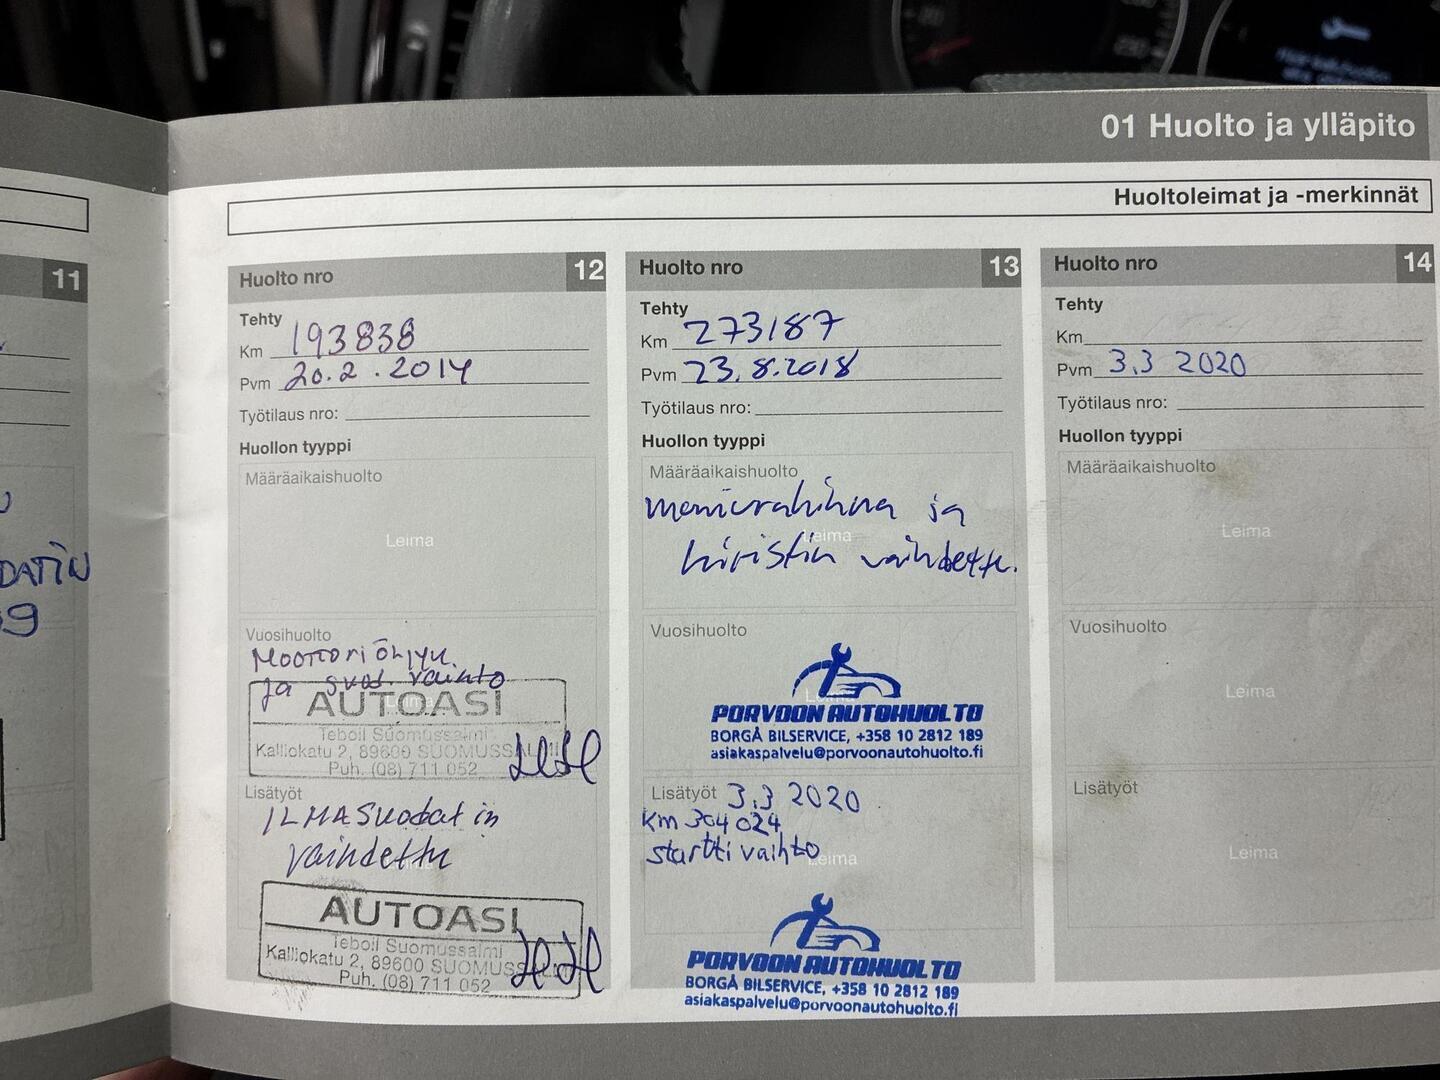 01 Huolto ja ylläpito
Huoltoleimat ja -merkinnät
11
DATIN
Huolto nro 12
Tehty
Km 193838
Pvm 20.2.2014
Työtilaus nro:
Huollon tyyppi
Määräaikaishuolto
Leima
Vuosihuolto
Moottoriöljyn
ja suod. vaihto
Leima
AUTOASI
Teboil Suomussalmi
Kalliokatu 2, 89600 SUOMUSSALMI
Puh. (08) 711 052
Lisätyöt
ILMASUODATIN
vaihdettu
AUTOASI
Teboil Suomussalmi
Kalliokatu 2, 89600 SUOMUSSALMI
Puh. (08) 711 052
Huolto nro 13
Tehty
Km 273187
Pvm 23.8.2018
Työtilaus nro:
Huollon tyyppi
Määräaikaishuolto
moniurahihna ja
Leima
kiristin vaihdettu.
Vuosihuolto
Leima
PORVOON AUTOHUOLTO
BORGÅ BILSERVICE, +358 10 2812 189
asiakaspalvelu@porvoonautohuolto.fi
Lisätyöt 3.3 2020
Km 304 024
startti vaihto
Leima
PORVOON AUTOHUOLTO
BORGÅ BILSERVICE, +358 10 2812 189
asiakaspalvelu@porvoonautohuolto.fi
Huolto nro 14
Tehty
Km
Pvm 3.3 2020
Työtilaus nro:
Huollon tyyppi
Määräaikaishuolto
Leima
Vuosihuolto
Leima
Lisätyöt
Leima